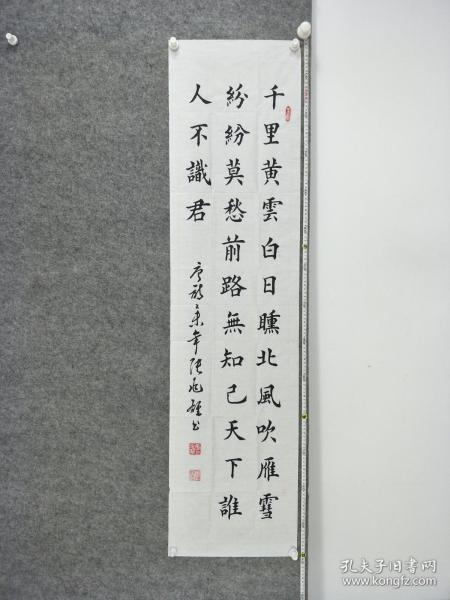 千里黄雲白日曛北風吹雁雪
紛紛莫愁前路無知己天下誰
人不識君
孔夫子旧书网
www.kongfz.com